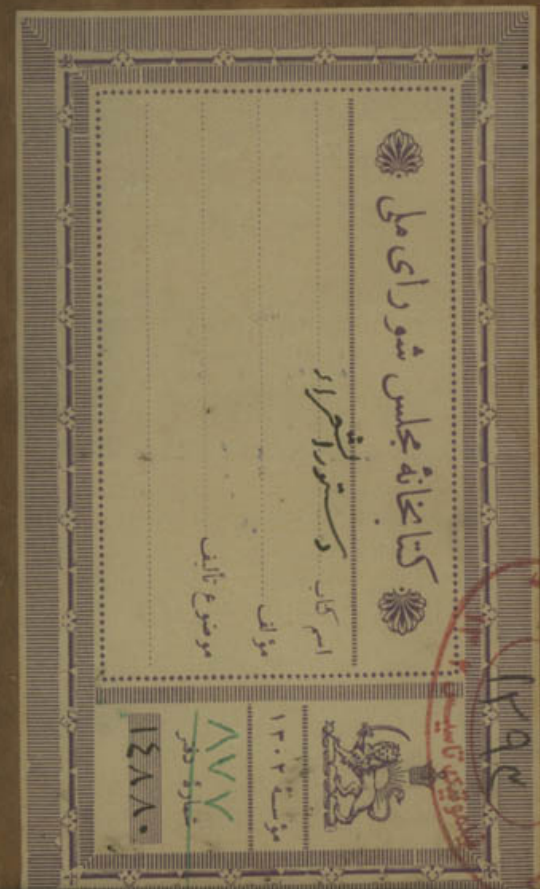 کتابخانهٔ مجلس شورای ملی
اسم کتاب دستور الشعراء
مؤلف
موضوع تألیف
مؤسسه ۱۳۰۲
۸۷۷
شمارهٔ دفتر
۱۴۸۸۰